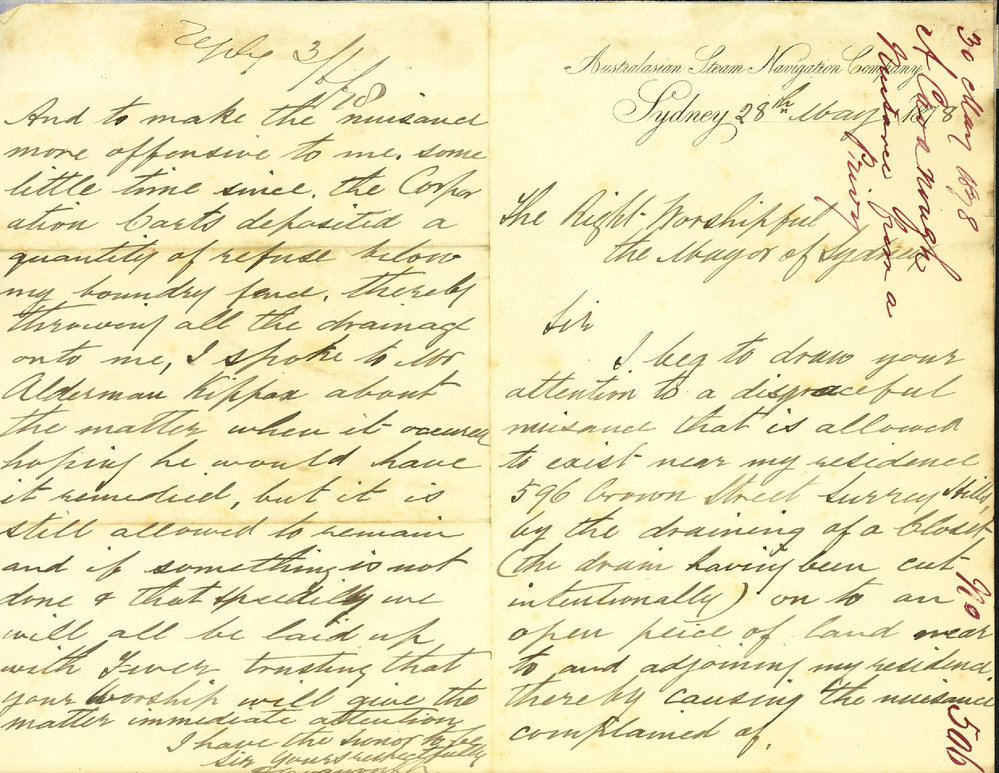 Australasian Steam Navigation Company
Sydney 28th May 1878
The Right Worshipful
the Mayor of Sydney
Sir
I beg to draw your
attention to a disgraceful
nuisance that is allowed
to exist near my residence
596 Crown Street Surrey Hills,
by the draining of a Closet
(the drain having been cut
intentionally) on to an
open peice of land near
to and adjoining my residence
thereby causing the nuisance
complained of,
And to make the nuisance
more offensive to me, some
little time since, the Corpor
ation Carts deposited a
quantity of refuse below
my boundry fence, thereby
throwing all the drainage
onto me, I spoke to Mr
Alderman Kippax about
the matter when it occured
hoping he would have
it remedied, but it is
still allowed to remain
and if something is not
done & that speedily we
will all be laid up
with Fever trusting that
your Worship will give the
matter immediate attention
I have the honor to be
Sir Yours respectfully
Reply 3/6/78
30 May 1878
Nuisance from a
Privy
No 506